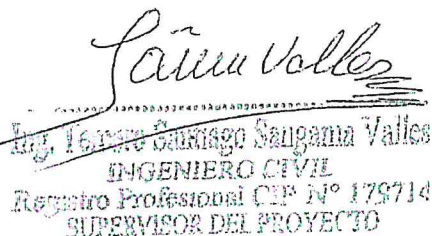 Valles
Ing. Santiago Sangama Valles
INGENIERO CIVIL
Registro Profesional CIP N° 179714
SUPERVISOR DEL PROYECTO